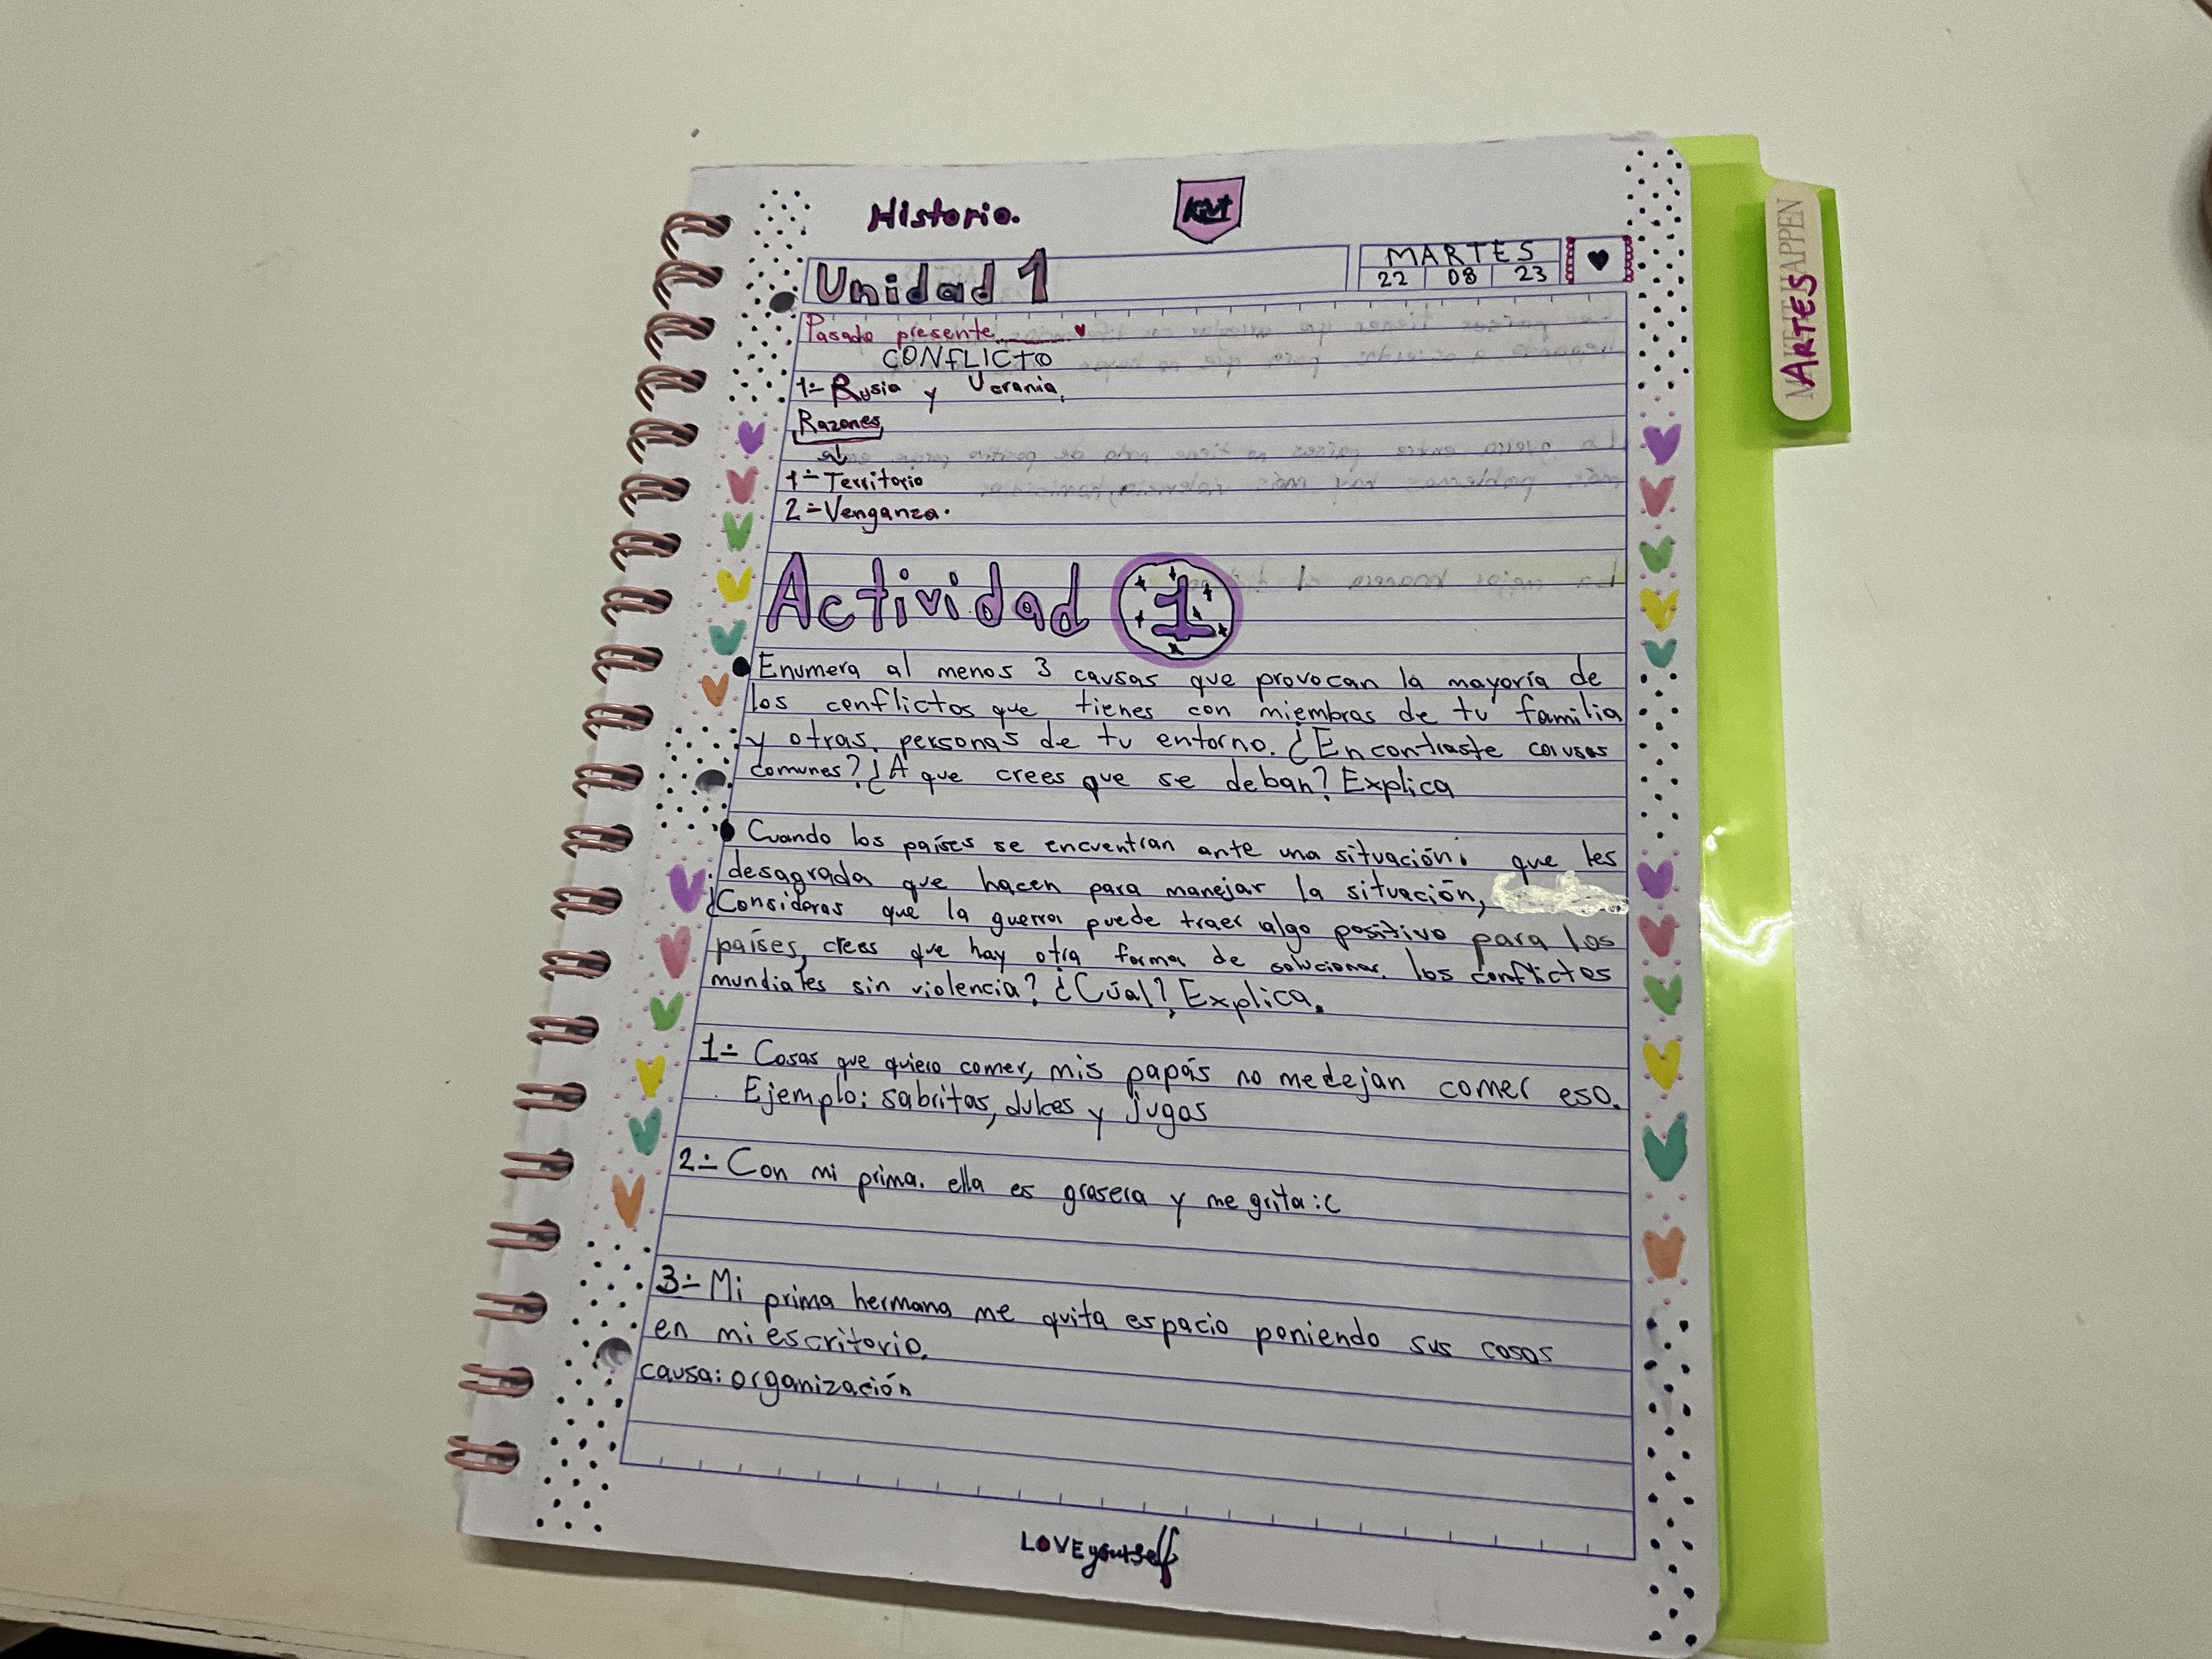 Historia.
KVT
Unidad 1
MARTES
22 08 23
Pasado presente........
CONFLICTO
1- Rusia y Ucrania.
Razones
1- Territorio
2- Venganza.
Actividad 1
Enumera al menos 3 causas que provocan la mayoría de
los conflictos que tienes con miembros de tu familia
y otras personas de tu entorno. ¿Encontraste causas
comunes? ¿A que crees que se deban? Explica
Cuando los países se encuentran ante una situación. que les
desagrada que hacen para manejar la situación,
¿Consideras que la guerra puede traer algo positivo para los
países, crees que hay otra forma de solucionar los conflictos
mundiales sin violencia? ¿Cúal? Explica.
1- Cosas que quiero comer, mis papás no me dejan comer eso.
Ejemplo: sabritas, dulces y jugos
2- Con mi prima. ella es grosera y me grita :c
3- Mi prima hermana me quita espacio poniendo sus cosas
en mi escritorio.
causa: organización
LOVE yourself
ARTES